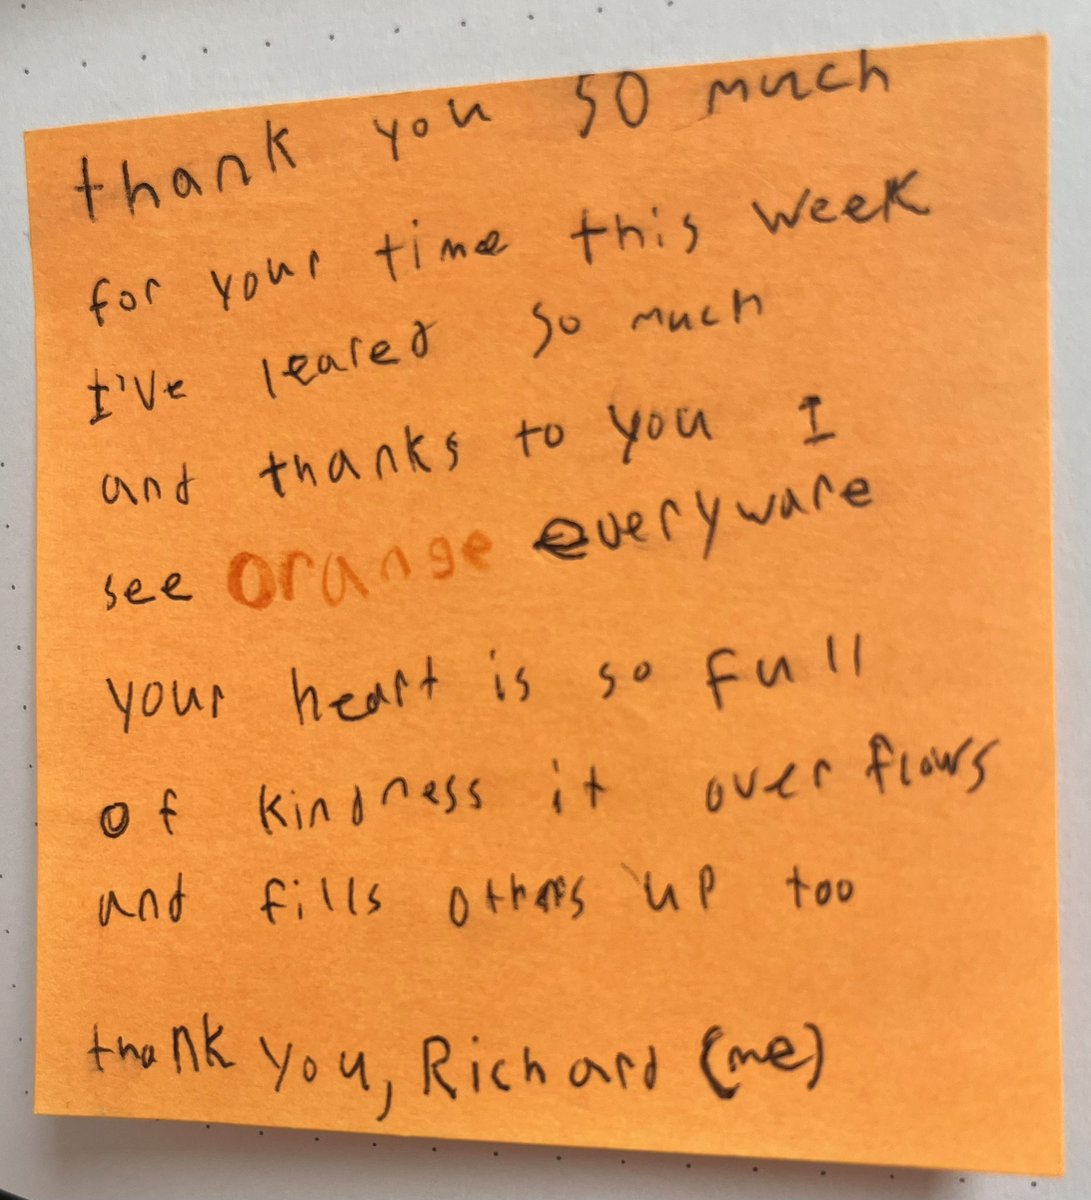 thank you so much
for your time this week
I've leared so much
and thanks to you I
see orange everyware
your heart is so full
of kindness it over flows
and fills others up too
thank you, Richard (me)